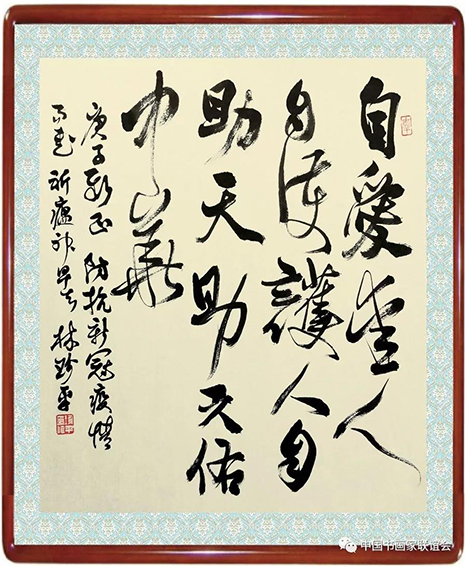 自愛愛人
自護護人自
助天助天佑
中華
庚子新正 防抗新冠疫情
祈瘟神早去 林
中国书画家联谊会